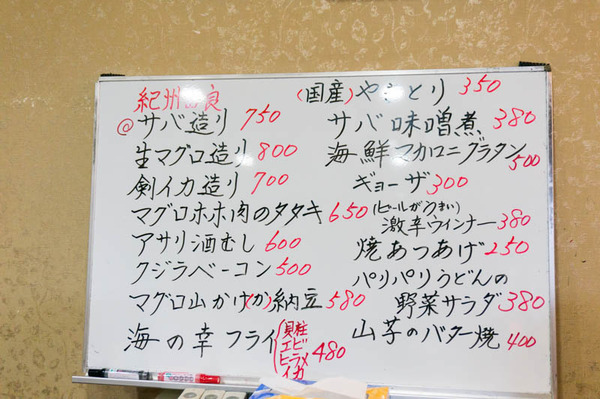 紀州 良
@サバ造り 750
生マグロ造り 800
剣イカ造り 700
マグロホホ肉のタタキ 650
アサリ酒むし 600
クジラベーコン 500
マグロ山かけ(か)納豆 580
海の幸フライ(貝柱 エビ ヒラメ イカ 480
(国産)やきとり 350
サバ味噌煮 380
海鮮マカロニグラタン 500
ギョーザ 300
(ビールがうまい)
激辛ウインナー 380
焼あつあげ 250
パリパリうどんの
野菜サラダ 380
山芋のバター焼 400